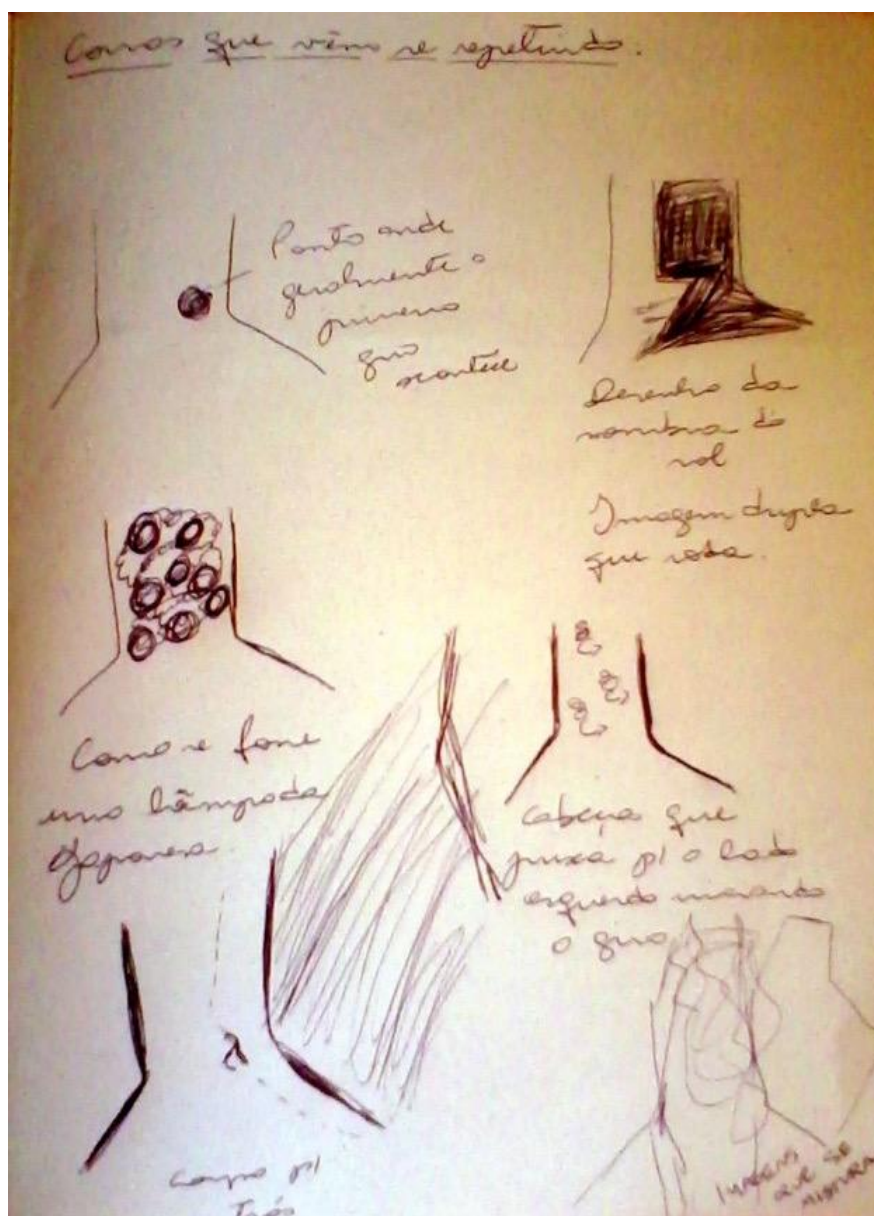 Coisas que vêm se repetindo.
Ponto onde
geralmente o
primeiro
giro
acontece
Desenho da
sombra do
sol
Imagem dupla
que roda.
Como se fosse
uma lâmpada
Japonesa.
cabeça que
puxa p/ o lado
esquerdo
o giro
corpo p/
trás
IMAGENS
QUE SE
MISTURAM